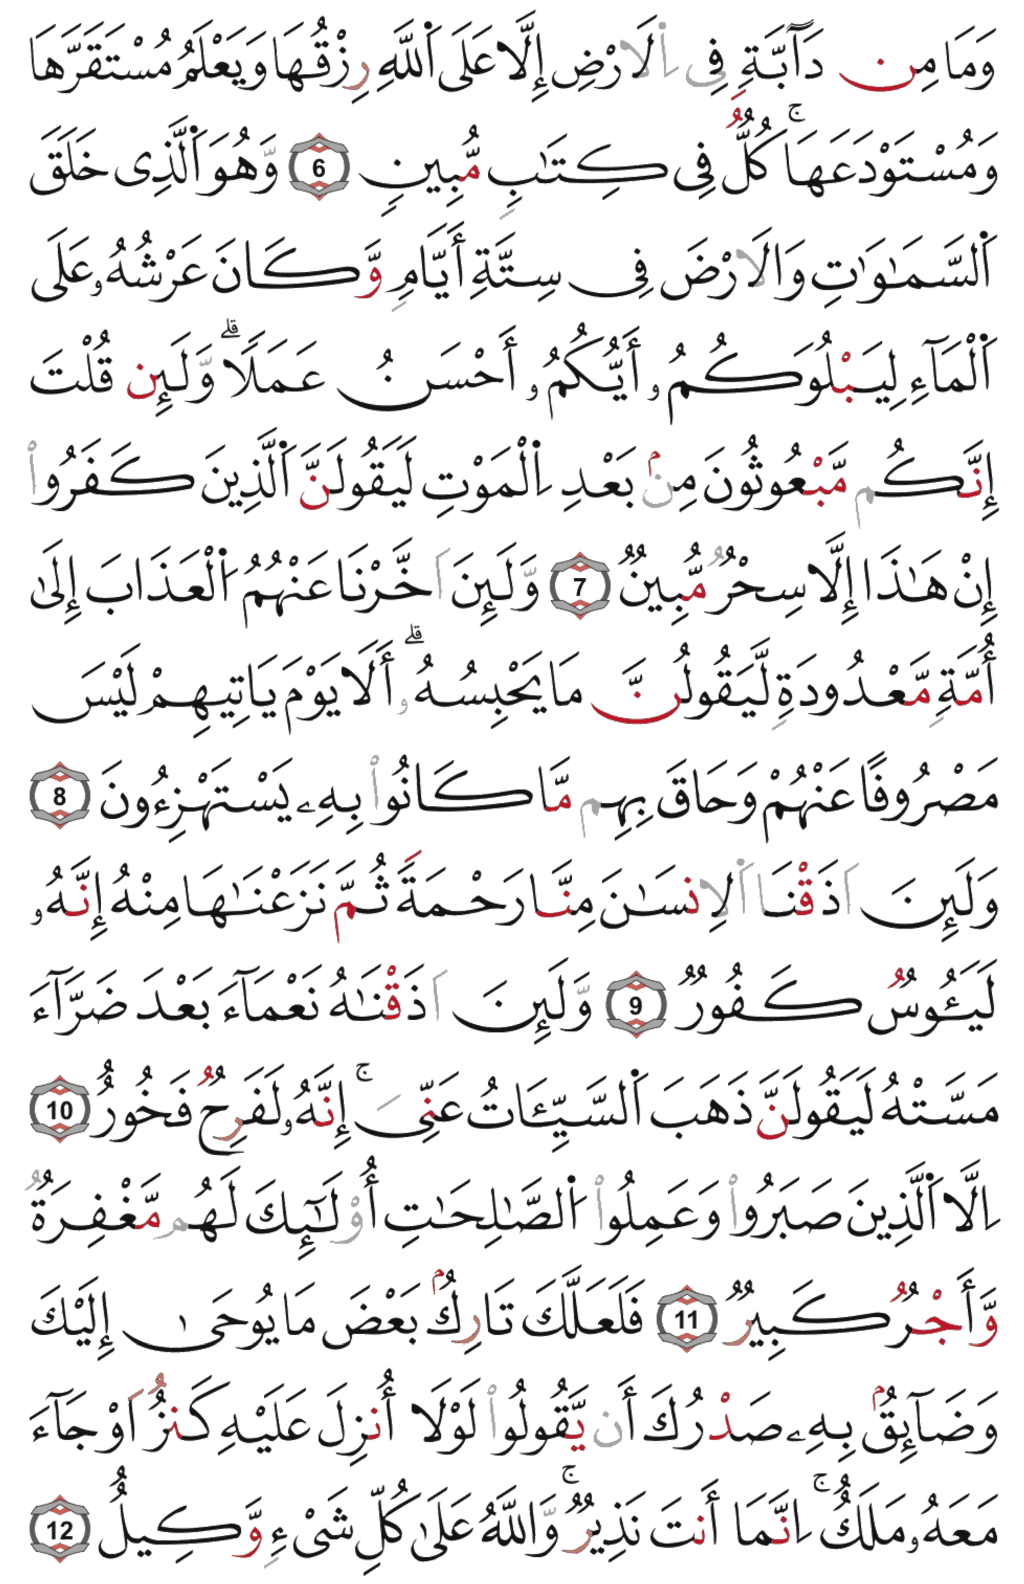 وَمَا مِن دَآبَّةٍ فِى اِ۬لَارْضِ إِلَّا عَلَى اَ۬للَّهِ رِزْقُهَا وَيَعْلَمُ مُسْتَقَرَّهَا
وَمُسْتَوْدَعَهَاۚ كُلٌّ فِى كِتَٰبٍ مُّبِينٍ 6 وَّهُوَ اَ۬لَّذِى خَلَقَ
اَ۬لسَّمَٰوَٰتِ وَالَارْضَ فِى سِتَّةِ أَيَّامٍ وَّكَانَ عَرْشُهُۥ عَلَى
اَ۬لْمَآءِ لِيَبْلُوَكُمُۥ أَيُّكُمُۥ أَحْسَنُ عَمَلًاۗ وَّلَئِن قُلْتَ
إِنَّكُم مَّبْعُوثُونَ مِنۢ بَعْدِ اِ۬لْمَوْتِ لَيَقُولَنَّ اَ۬لَّذِينَ كَفَرُوا۟
إِنْ هَٰذَا إِلَّا سِحْرٌ مُّبِينٌ 7 وَّلَئِنَ اَخَّرْنَا عَنْهُمُ اُ۬لْعَذَابَ إِلَىٰ
أُمَّةٍ مَّعْدُودَةٍ لَّيَقُولُنَّ مَا يَحْبِسُهُۥۗ أَلَا يَوْمَ يَاتِيهِمْ لَيْسَ
مَصْرُوفًا عَنْهُمْ وَحَاقَ بِهِم مَّا كَانُوا۟ بِهِۦ يَسْتَهْزِءُونَ 8
وَلَئِنَ اَذَقْنَا اَ۬لِانسَٰنَ مِنَّا رَحْمَةً ثُمَّ نَزَعْنَٰهَا مِنْهُ إِنَّهُۥ
لَيَـُٔوسٌ كَفُورٌ 9 وَّلَئِنَ اَذَقْنَٰهُ نَعْمَآءَ بَعْدَ ضَرَّآءَ
مَسَّتْهُ لَيَقُولَنَّ ذَهَبَ اَ۬لسَّيِّـَٔاتُ عَنِّىَۚ إِنَّهُۥ لَفَرِحٌ فَخُورٌ 10
اِلَّا اَ۬لَّذِينَ صَبَرُوا۟ وَعَمِلُوا۟ اُ۬لصَّٰلِحَٰتِ أُو۟لَٰٓئِكَ لَهُم مَّغْفِرَةٌ
وَّأَجْرٌ كَبِيرٌ 11 فَلَعَلَّكَ تَارِكُۢ بَعْضَ مَا يُوحَىٰ إِلَيْكَ
وَضَآئِقُۢ بِهِۦ صَدْرُكَ أَن يَّقُولُوا۟ لَوْلَا أُنزِلَ عَلَيْهِ كَنزٌ اَوْ جَآءَ
مَعَهُۥ مَلَكٌۚ اِنَّمَا أَنتَ نَذِيرٌۚ وَّاللَّهُ عَلَىٰ كُلِّ شَىْءٍ وَّكِيلٌ 12